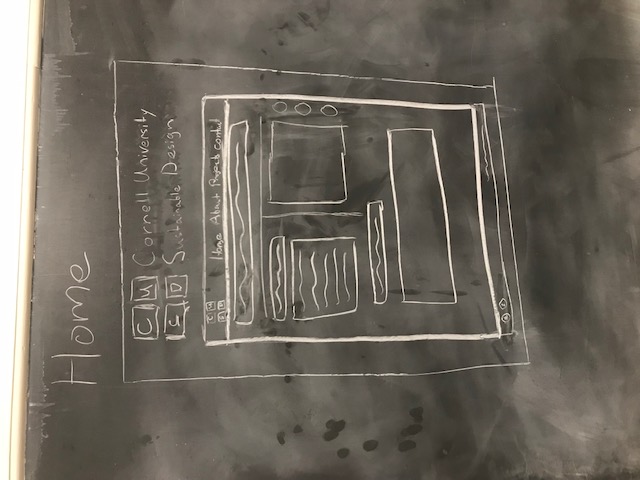 Home
C U Cornell University
S D Sustainable Design
C U
S D
Home About Projects Contact